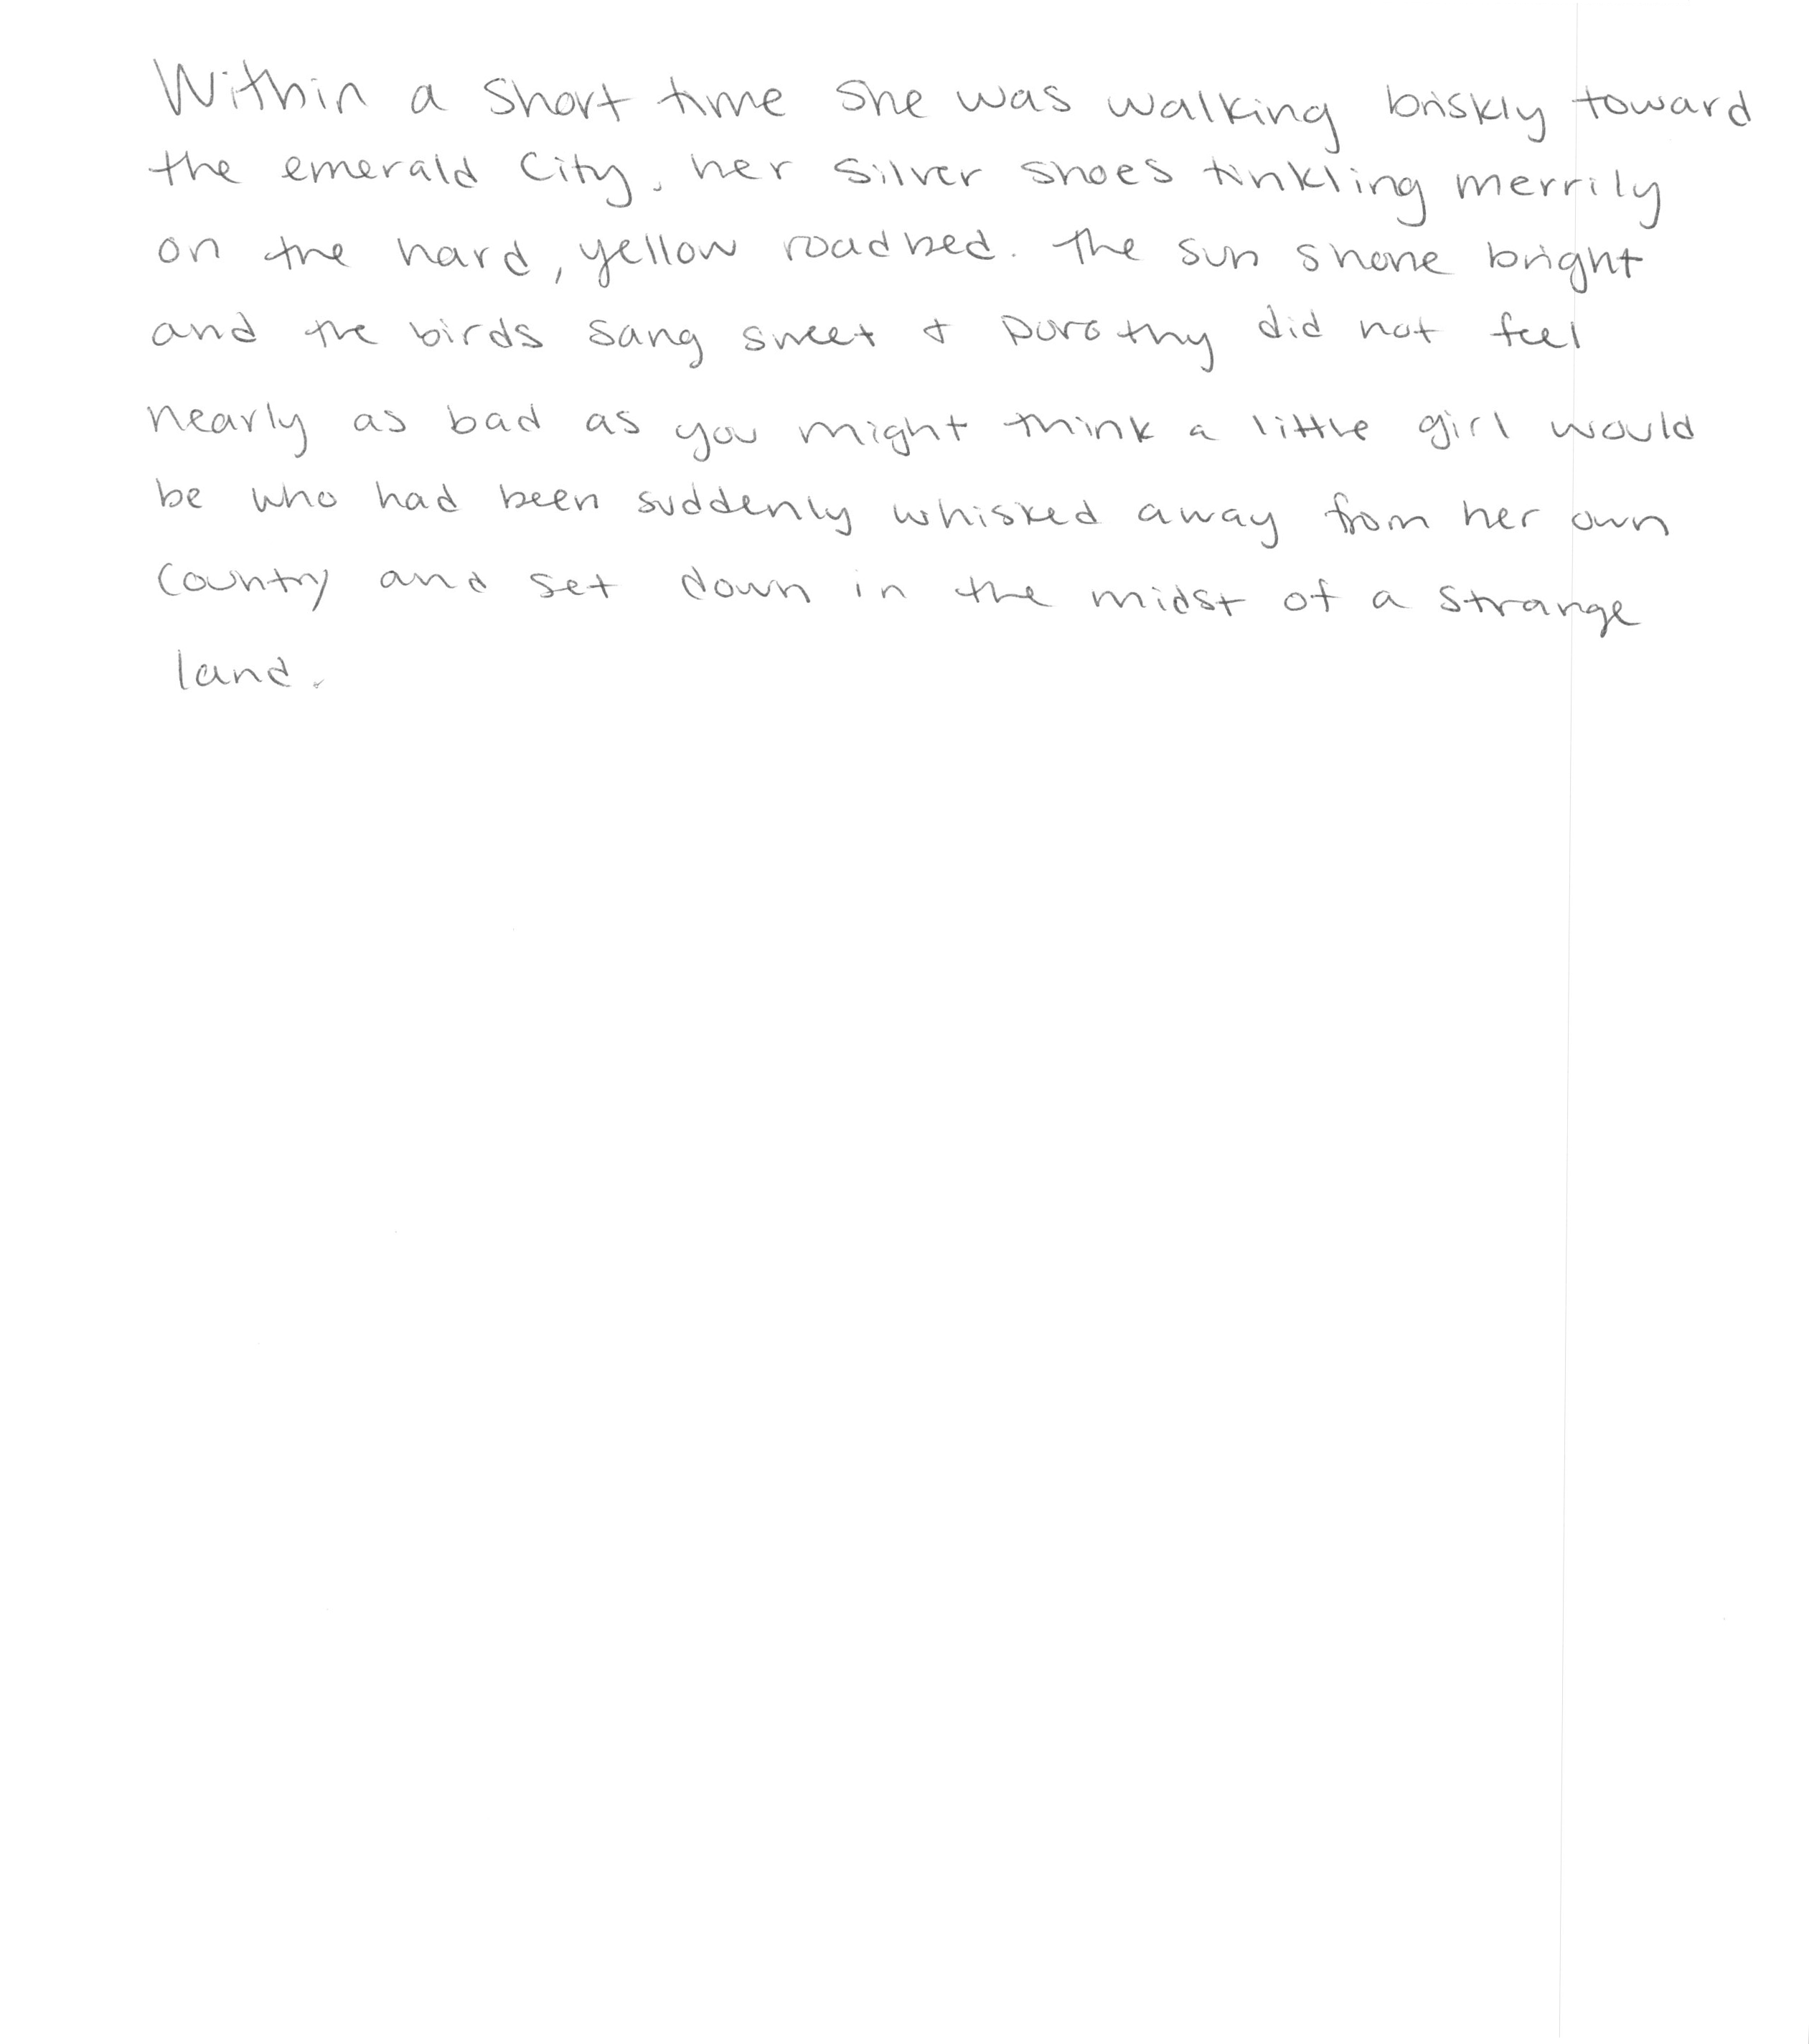 Within a short time she was walking briskly toward
the emerald City, her silver shoes tinkling merrily
on the hard, yellow roadbed. The sun shone bright
and the birds sang sweet + Dorothy did not feel
nearly as bad as you might think a little girl would
be who had been suddenly whisked away from her own
country and set down in the midst of a strange
land.